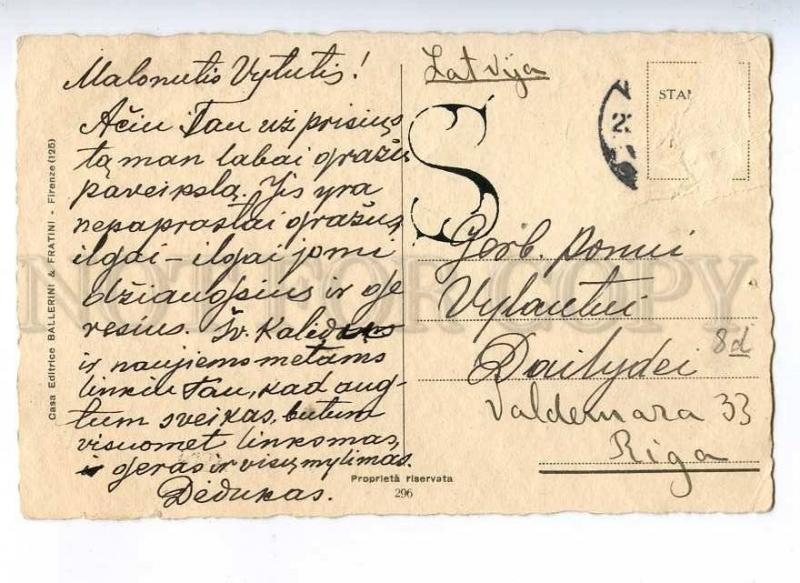 Malonutis Vytutis!
Ačiu Tau už prisius
tą man labai gražų
paveikslą. Jis yra
nepaprastai gražus,
ilgai – ilgai jomi
džiaugsius ir gė
rėsius. Šv. Kalėdoms
ir naujiems metams
linkiu Tau, kad aug-
tum sveikas, butum
visuomet linksmas,
geras ir visų mylimas.
Dėdukas.
Casa Editrice BALLERINI & FRATINI - Firenze (125)
Proprietà riservata
296
Latvija
S
STA
2
Gerb. ponui
Vytautui
Dailydei
8d
Valdemara 33
Riga
NOT FOR COPY